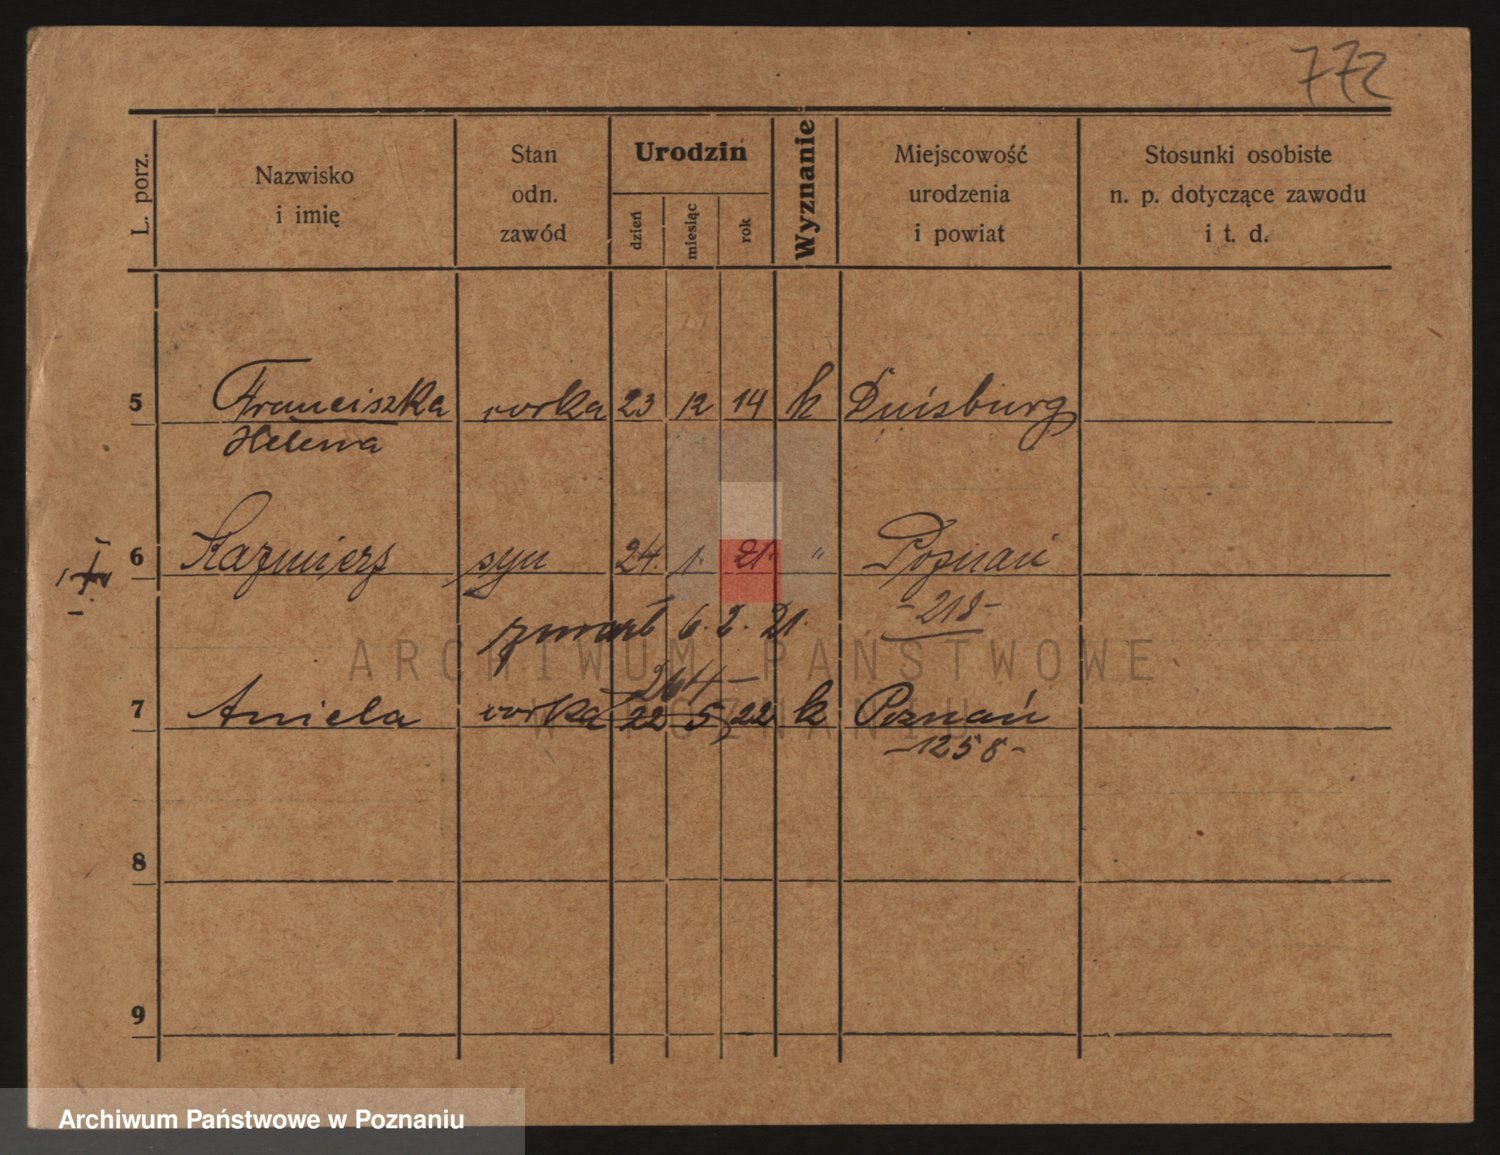 772
L. porz.
Nazwisko
i imię
Stan
odn.
zawód
Urodzin
dzień
miesiąc
rok
Wyznanie
Miejscowość
urodzenia
i powiat
Stosunki osobiste
n. p. dotyczące zawodu
i t. d.
5 Franciszka córka 23 12 14 k Duisburg
Helena
6 Kazmierz syn 24. 1. 21. " Poznań
zmarł 6. 2. 21. -218-
-264-
7 Aniela córka 22 5, 22 k Poznań
-1258-
8
9
ARCHIWUM PAŃSTWOWE
W POZNANIU
Archiwum Państwowe w Poznaniu